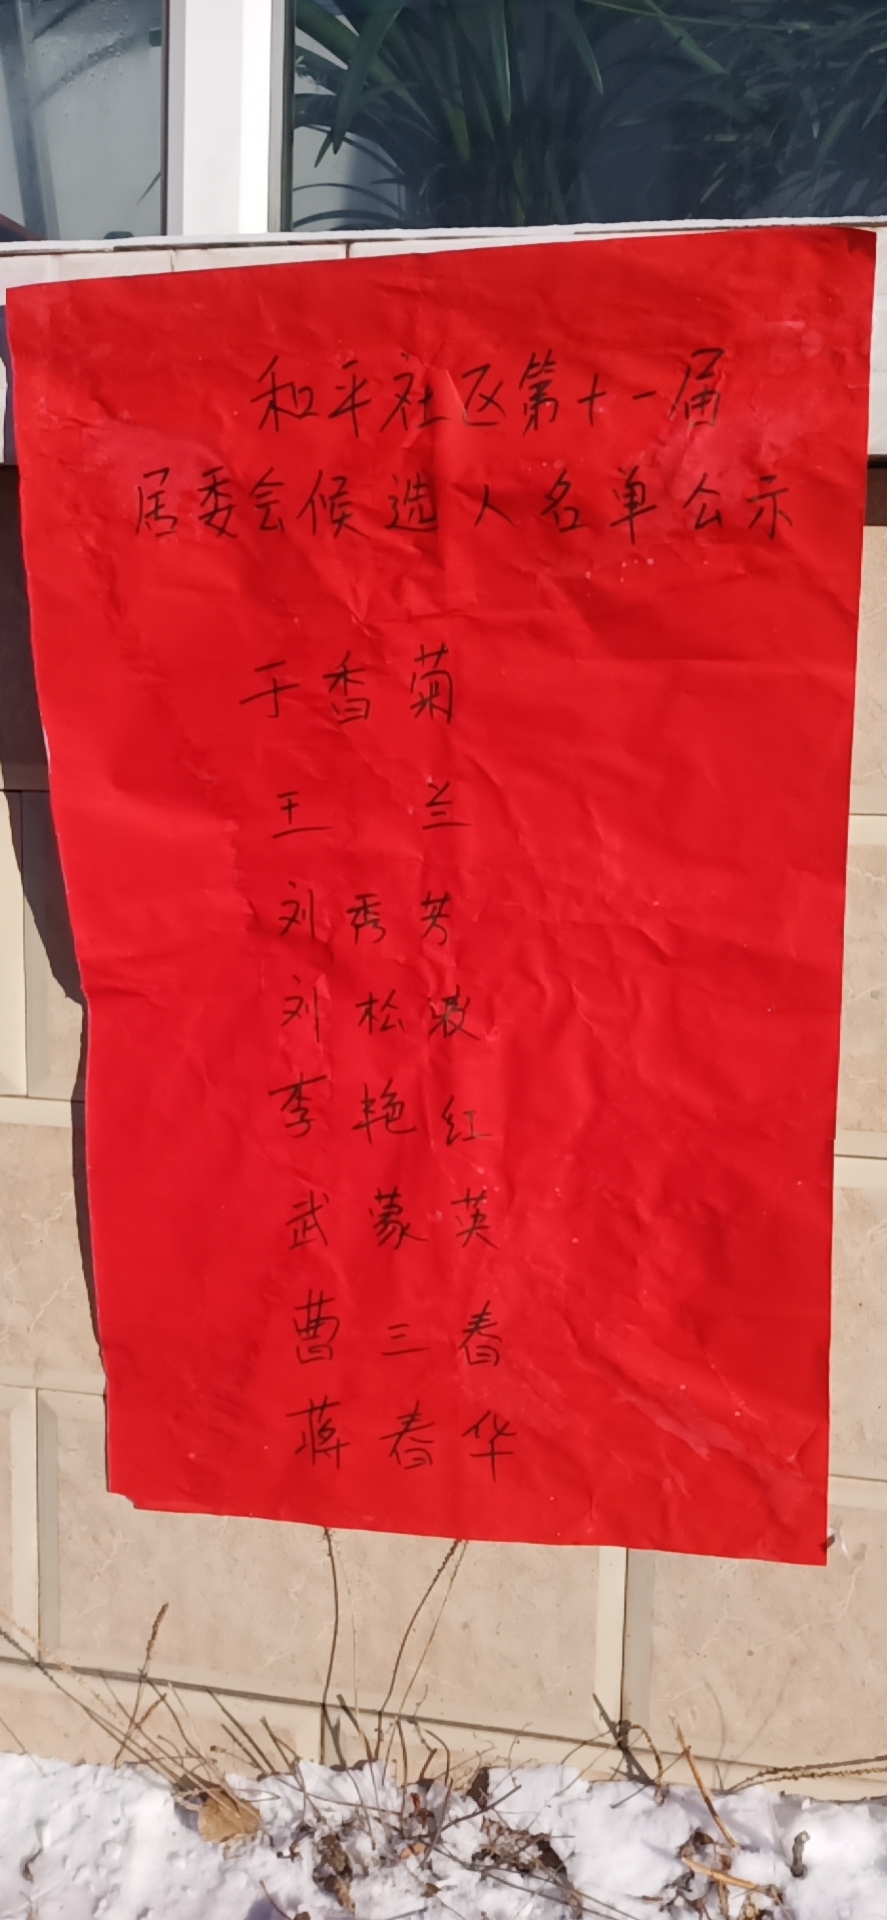 和平社区第十一届
居委会候选人名单公示
于香菊
王 兰
刘秀芳
刘松波
李艳红
武蒙英
曹三春
蒋春华